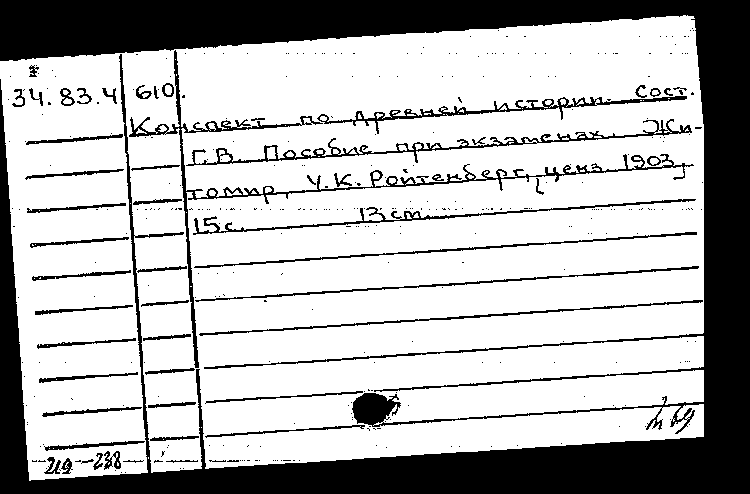 34.83.4 610.
Конспект по древней истории. Сост.
Г.В. Пособие при экзаменах. Жи-
томир, У.К. Ройтенберг, [ценз. 1903]
15 с. 13 cm.
219-238